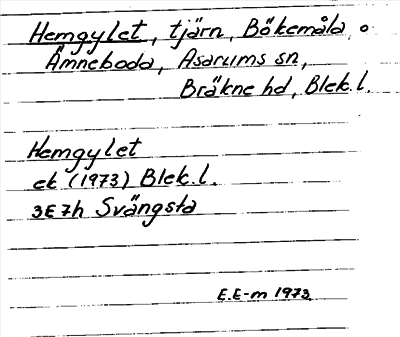 Hemgylet, tjärn, Bökemåla o
Ämneboda, Asarums sn,
Bräkne hd, Blek. l.
Hemgylet
ek (1973) Blek. l.
3E7h Svängsta
E.E-m 1973